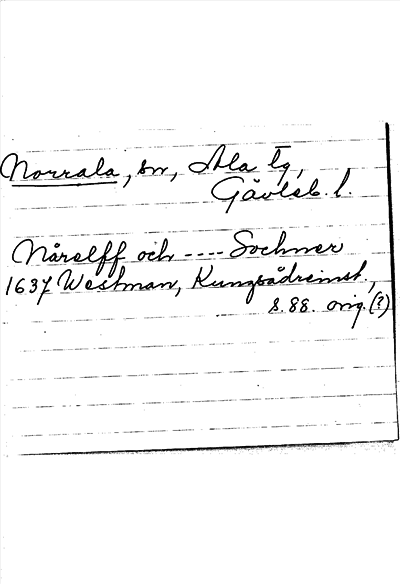 Norrala, sn, Ala tg,
Gävleb. l.
Nårelff och ---- Sochner
1637 Westman, Kungsådreinst.,
s. 88. orig. (?)